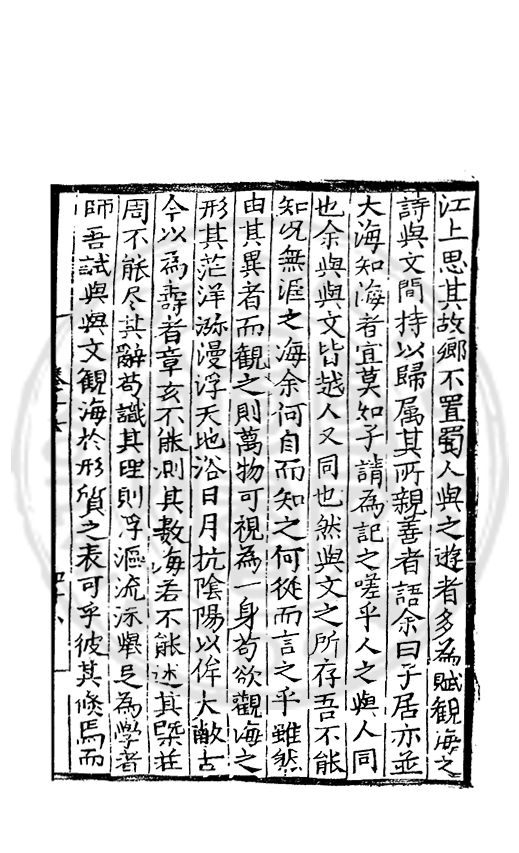 江上思其故鄉不置蜀人與之遊者多為賦觀海之
詩與文間持以歸属其所親善者語余曰子居亦並
大海知海者宜莫知子請為記之嗟乎人之與人同
也余與與文皆越人又同也然與文之所存吾不能
知况無涯之海余何自而知之何從而言之乎雖然
由其異者而觀之則萬物可視為一身苟欲觀海之
形其茫洋瀰漫浮天地浴日月抗陰陽以侔大敝古
今以為壽者章亥不能測其數海若不能述其槩莊
周不能尽其辭苟識其理則浮漚流沫舉足為學者
師吾試與與文觀海於形質之表可乎彼其倏焉而